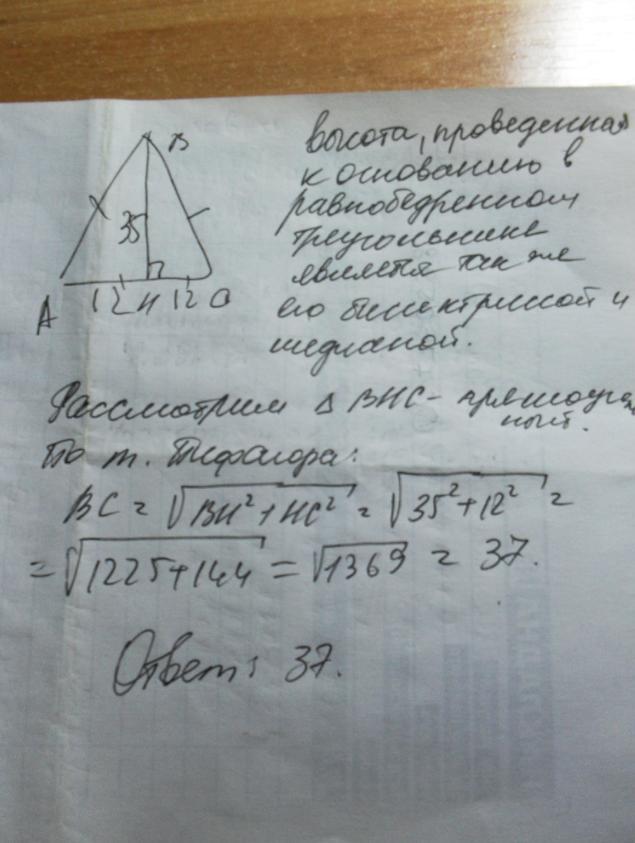 B
35
A 12 H 12 C
высота, проведенная
к основанию в
равнобедренном
треугольнике
является так же
его биссектрисой и
медианой.
Рассмотрим Δ BHC - прямоуголь
ный.
По т. Пифагора:
BC = √BH² + HC² = √35² + 12² =
= √1225 + 144 = √1369 = 37.
Ответ: 37.